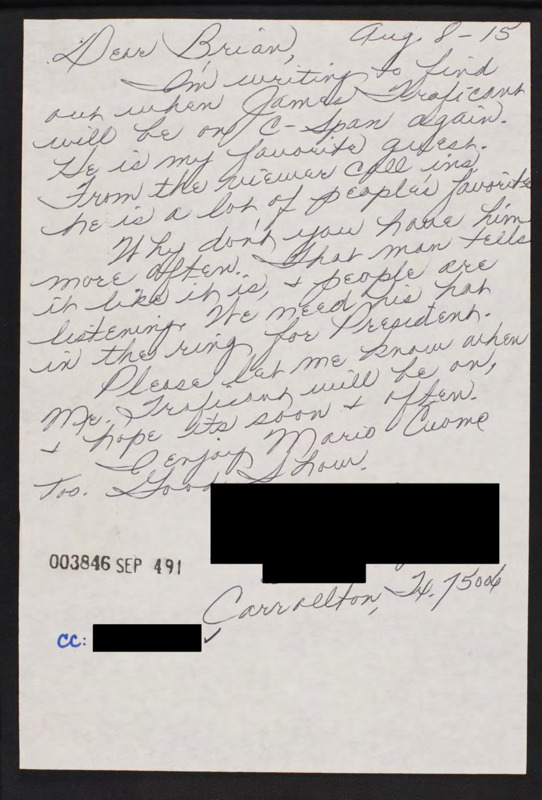 Dear Brian, Aug. 8-15
I'm writing to find
out when James Traficant
will be on C-Span again.
He is my favorite guest.
From the viewer call ins
he is a lot of people's favorite
Why don't you have him
more often. That man tells
it like it is, & people are
listening. We need his hat
in the ring for President.
Please let me know when
Mr. Traficant will be on,
& hope its soon & often.
I enjoy Mario Cuomo
Too. Good Show.
003846 SEP 491
Carrollton, Tx. 75006
cc: